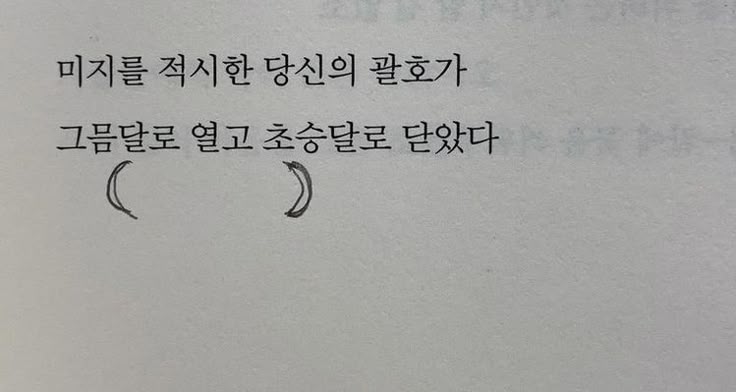 미지를 적시한 당신의 괄호가
그믐달로 열고 초승달로 닫았다
(          )